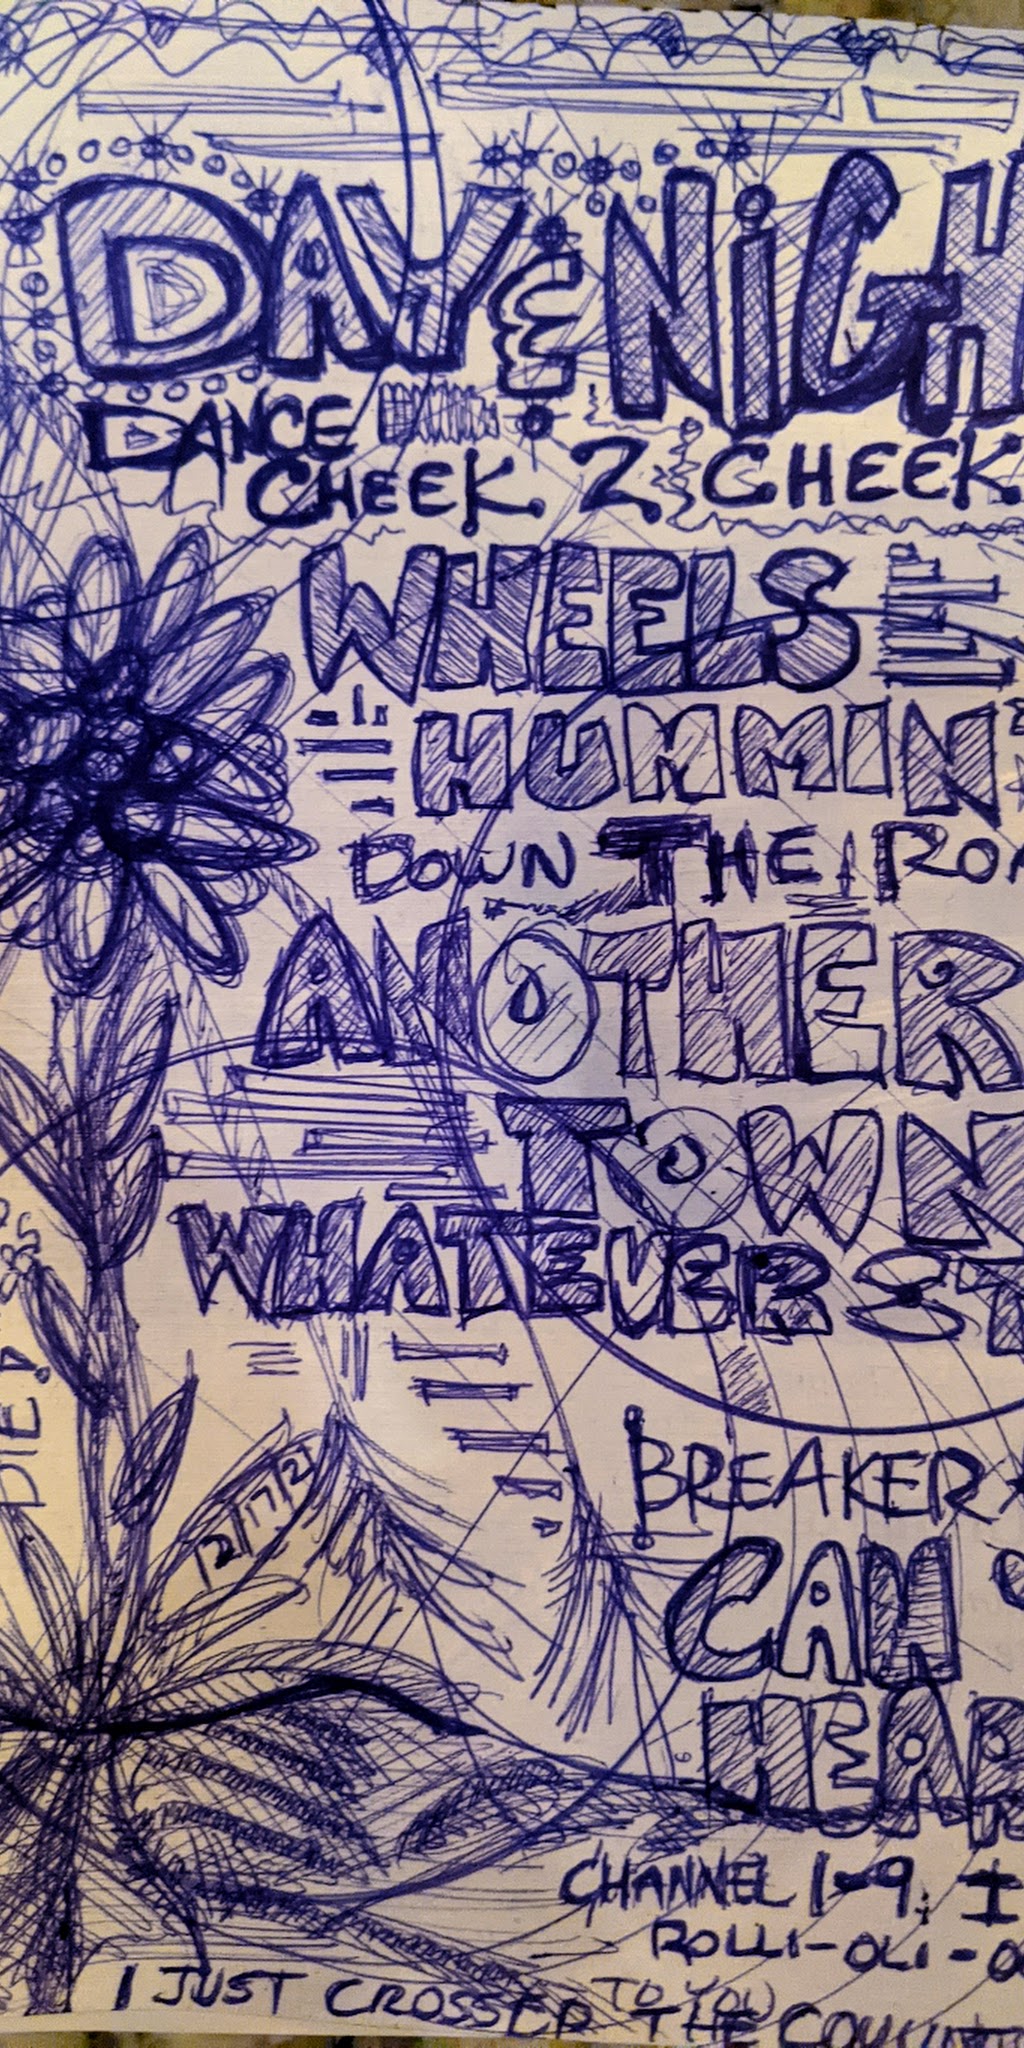 DAY & NIGH
DANCE
CHEEK 2 CHEEK
WHEELS
HUMMIN'
DOWN THE ROA
ANOTHER
TOWN
WHATEVER ST
BREAKER
CAN
HEAR
CHANNEL 1-9, I
ROLLI-OLI-O
TO YOU
I JUST CROSSED THE COUNT
DIE!
12/17/21